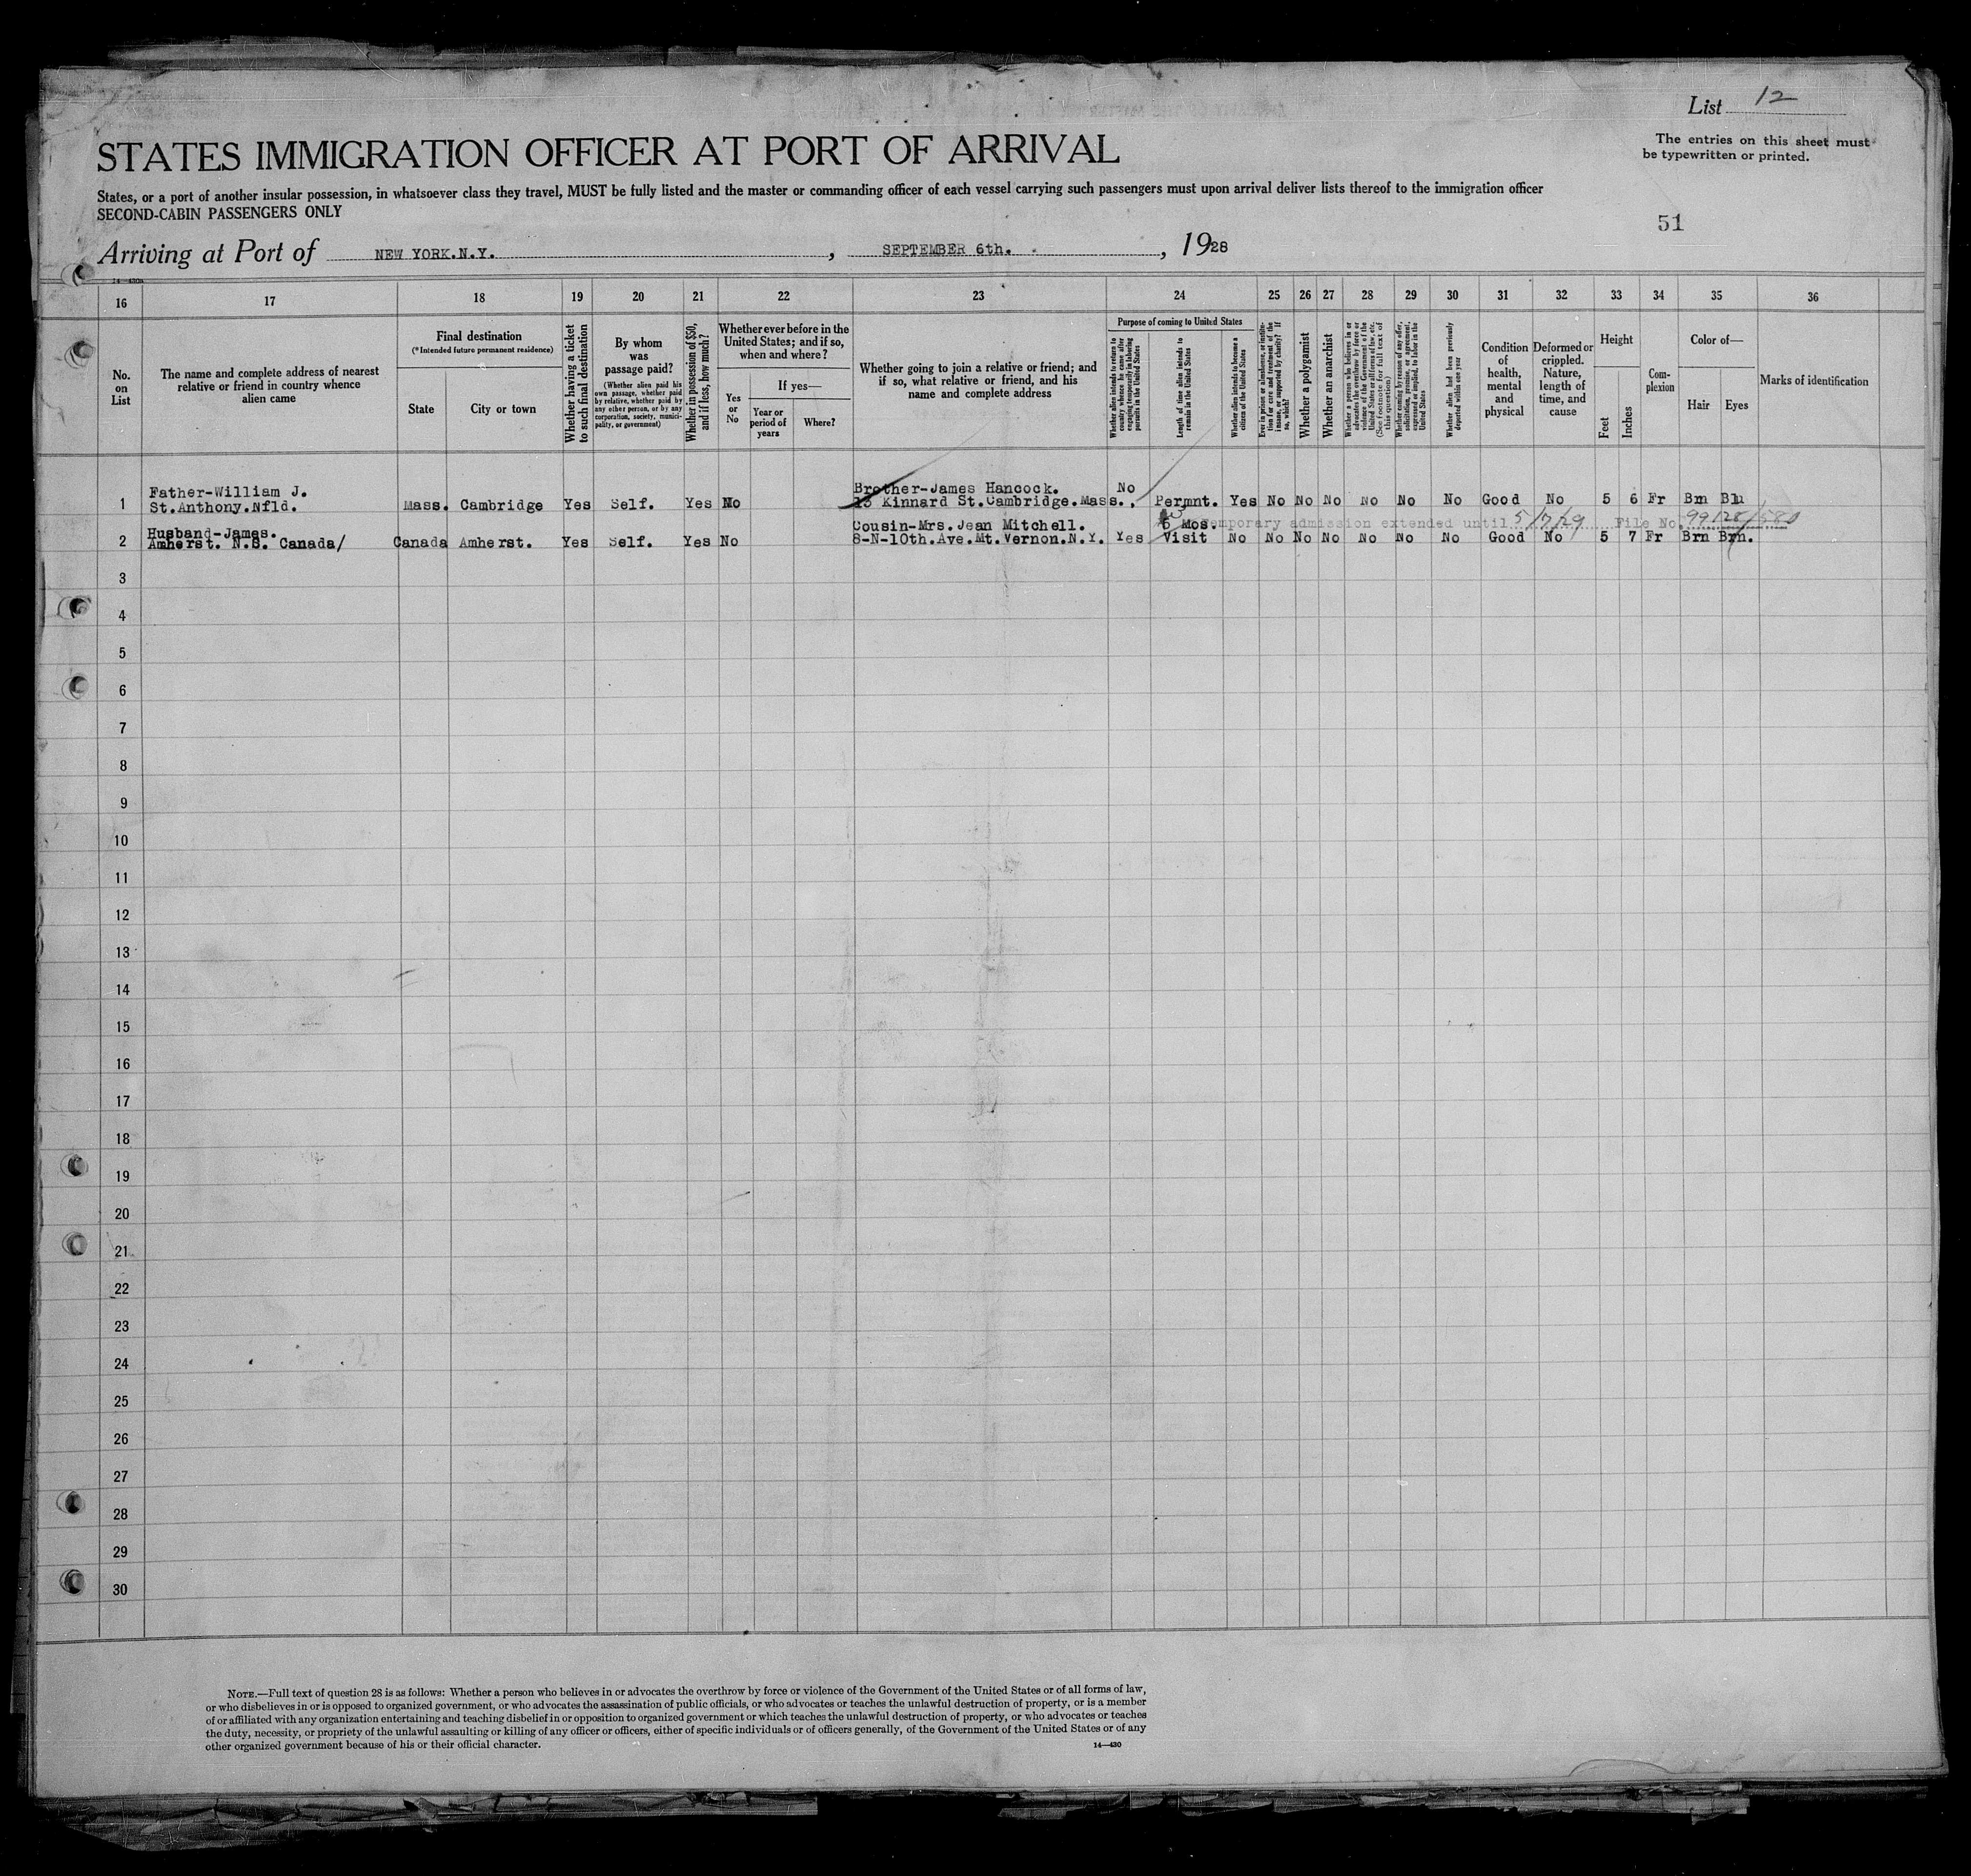 List 12
The entries on this sheet must
be typewritten or printed.
STATES IMMIGRATION OFFICER AT PORT OF ARRIVAL
States, or a port of another insular possession, in whatsoever class they travel, MUST be fully listed and the master or commanding officer of each vessel carrying such passengers must upon arrival deliver lists thereof to the immigration officer
SECOND-CABIN PASSENGERS ONLY
51
Arriving at Port of NEW YORK.N.Y. , SEPTEMBER 6th. , 1928
16 17 18 19 20 21 22 23 24 25 26 27 28 29 30 31 32 33 34 35 36
No.
on
List
The name and complete address of nearest
relative or friend in country whence
alien came
Final destination
(*Intended future permanent residence)
State
City or town
Whether having a ticket
to such final destination
By whom
was
passage paid?
(Whether alien paid his
own passage, whether paid
by relative, whether paid by
any other person, or by any
corporation, society, munici-
pality, or government)
Whether in possession of $50,
and if less, how much?
Whether ever before in the
United States; and if so,
when and where?
Yes
or
No
If yes—
Year or
period of
years
Where?
Whether going to join a relative or friend; and
if so, what relative or friend, and his
name and complete address
Purpose of coming to United States
Whether alien intends to return to
country whence he came after
engaging temporarily in laboring
pursuits in the United States
Length of time alien intends to
remain in the United States
Whether alien intends to become a
citizen of the United States
Ever in prison or almshouse, or institu-
tion for care and treatment of the
insane, or supported by charity? If
so, which?
Whether a polygamist
Whether an anarchist
Whether a person who believes in or
advocates the overthrow by force or
violence of the Government of the
United States or all forms of law, etc.
(See footnote for full text of
this question)
Whether coming by reason of any offer,
solicitation, promise, or agreement,
expressed or implied, to labor in the
United States
Whether alien had been previously
deported within one year
Condition
of
health,
mental
and
physical
Deformed or
crippled.
Nature,
length of
time, and
cause
Height
Feet
Inches
Com-
plexion
Color of—
Hair
Eyes
Marks of identification
Father-William J. Brother-James Hancock. No
1 St.Anthony.Nfld. Mass. Cambridge Yes Self. Yes No 13 Kinnard St.Cambridge.Mass., Permnt. Yes No No No No No No Good No 5 6 Fr Brn Blu
Husband-James. Cousin-Mrs.Jean Mitchell. 6 Mos. Temporary admission extended until 5/7/29 File No. 99128/580
2 Amherst. N.B. Canada/ Canada Amherst. Yes Self. Yes No 8-N-10th.Ave.Mt.Vernon.N.Y. Yes Visit No No No No No No No Good No 5 7 Fr Brn Brn.
3
4
5
6
7
8
9
10
11
12
13
14
15
16
17
18
19
20
21
22
23
24
25
26
27
28
29
30
NOTE.—Full text of question 28 is as follows: Whether a person who believes in or advocates the overthrow by force or violence of the Government of the United States or of all forms of law,
or who disbelieves in or is opposed to organized government, or who advocates the assassination of public officials, or who advocates or teaches the unlawful destruction of property, or is a member
of or affiliated with any organization entertaining and teaching disbelief in or opposition to organized government or which teaches the unlawful destruction of property, or who advocates or teaches
the duty, necessity, or propriety of the unlawful assaulting or killing of any officer or officers, either of specific individuals or of officers generally, of the Government of the United States or of any
other organized government because of his or their official character.
14—430